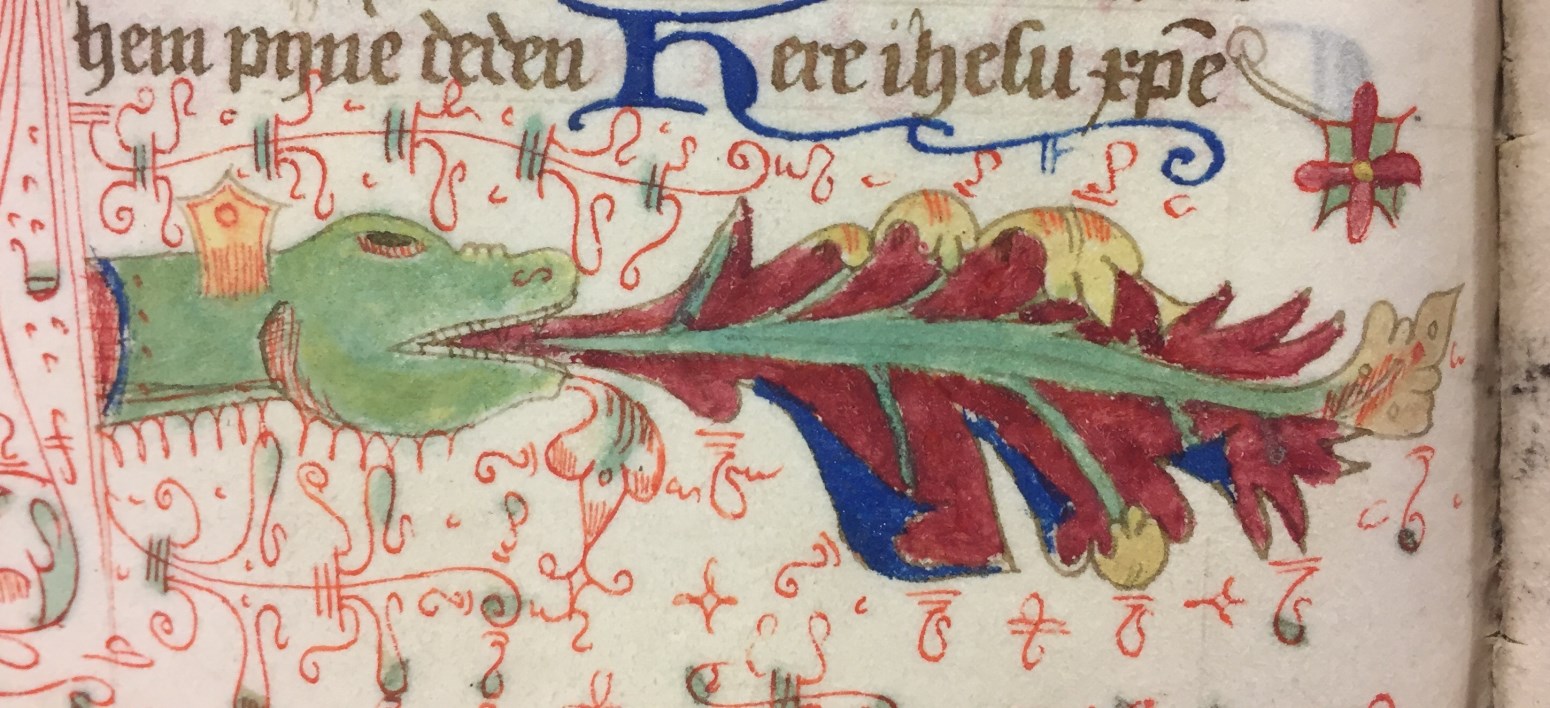 hem pyne deden Here ihesu xp̄e